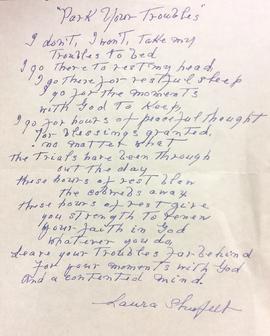 "Park Your Troubles"
I don't, I won't, take my
Troubles to bed
I go there to rest my head,
I go there for restful sleep
I go for the moments
with God to Keep,
I go for hours of peaceful thought
For blessings granted,
no matter what
the trials have been through
out the day
these hours of rest blew
the cobwebs away
these hours of rest give
you strength to renew
your faith in God
whatever you do,
Leave your troubles far behind
For your moments with God
And a contented mind.
Laura